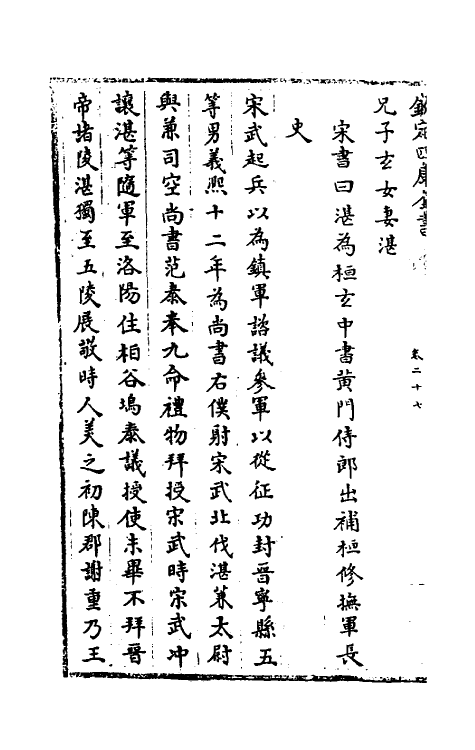 欽定四庫全書
卷二十七
兄子玄女妻湛
宋書曰湛為桓玄中書黃門侍郎出補桓修撫軍長
史
宋武起兵以為鎮軍諮議參軍以從征功封晉寧縣五
等男義熙十二年為尚書右僕射宋武北伐湛兼太尉
與兼司空尚書范泰奉九命禮物拜授宋武時宋武冲
讓湛等隨軍至洛陽住柏谷塢泰議授使未畢不拜晉
帝諸陵湛獨至五陵展敬時人美之初陳郡謝重乃王